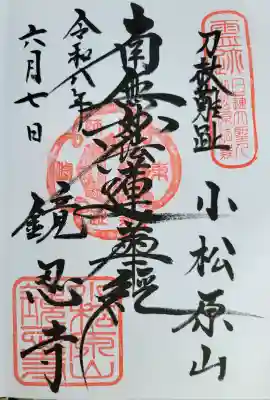 刀杖難趾
小松原山
南無妙法蓮華経
令和八年
六月七日
鏡忍寺